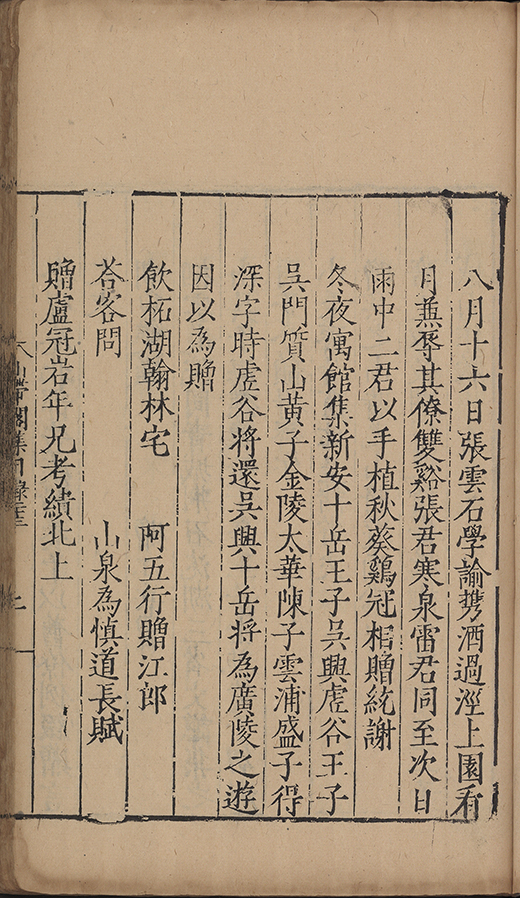 八月十六日張雲石學諭携酒過涇上園看
月蒹辱其僚雙谿張君寒泉雷君同至次日
雨中二君以手植秋葵鷄冠相贈統謝
冬夜寓館集新安十岳王子吳興虗谷王子
吳門質山黃子金陵太華陳子雲浦盛子得
深字時虗谷将還吳興十岳将為廣陵之遊
因以為贈
飲柘湖翰林宅 阿五行贈江郎
荅客問 山泉為慎道長賦
贈盧冠岩年兄考績北上